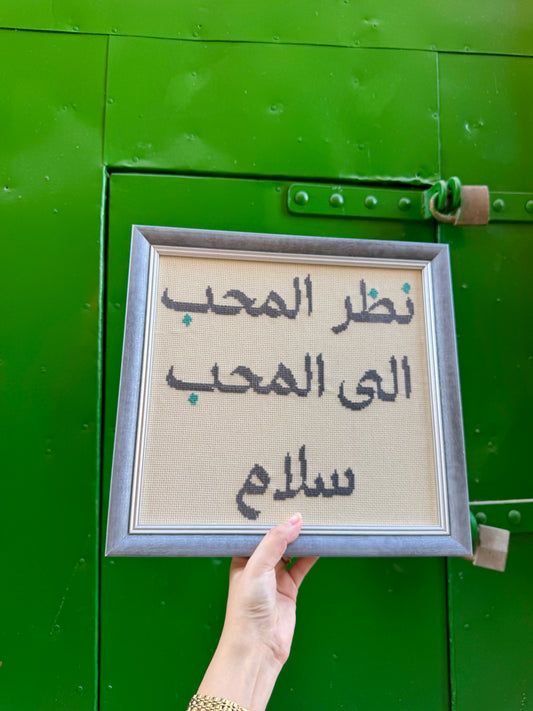 نظر المحب
الى المحب
سلام